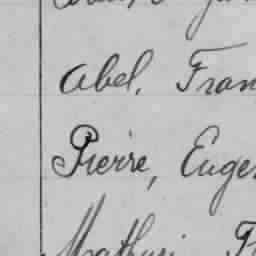 Abel, Fran
Pierre, Euge
Mathuri